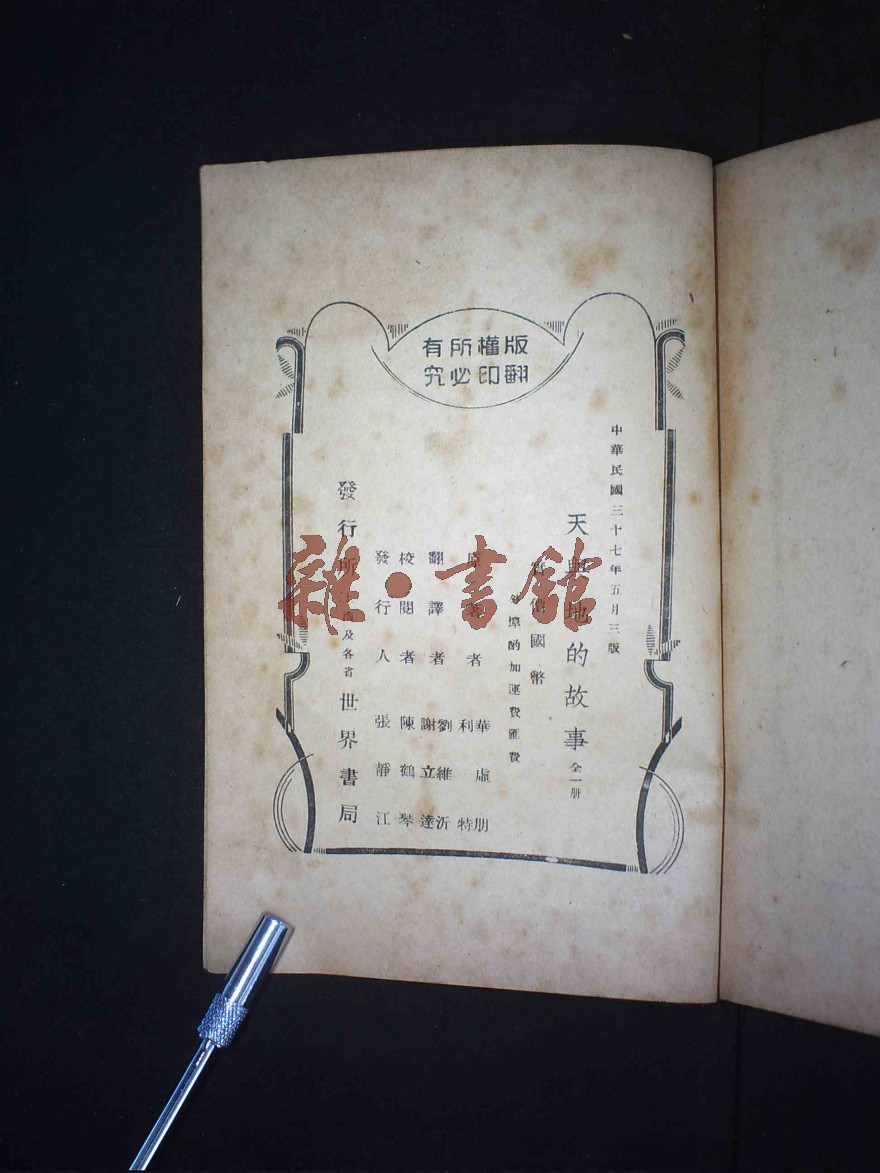 版權所有
翻印必究
中華民國三十七年五月三版
天與地的故事 全一册
國幣
酌加運費匯費
原著者 華虛朋 利特
翻譯者 劉維沂 謝立達
校閱者 陳鶴琴
發行人 張靜江
發行所 上海及各省 世界書局
雜·書館